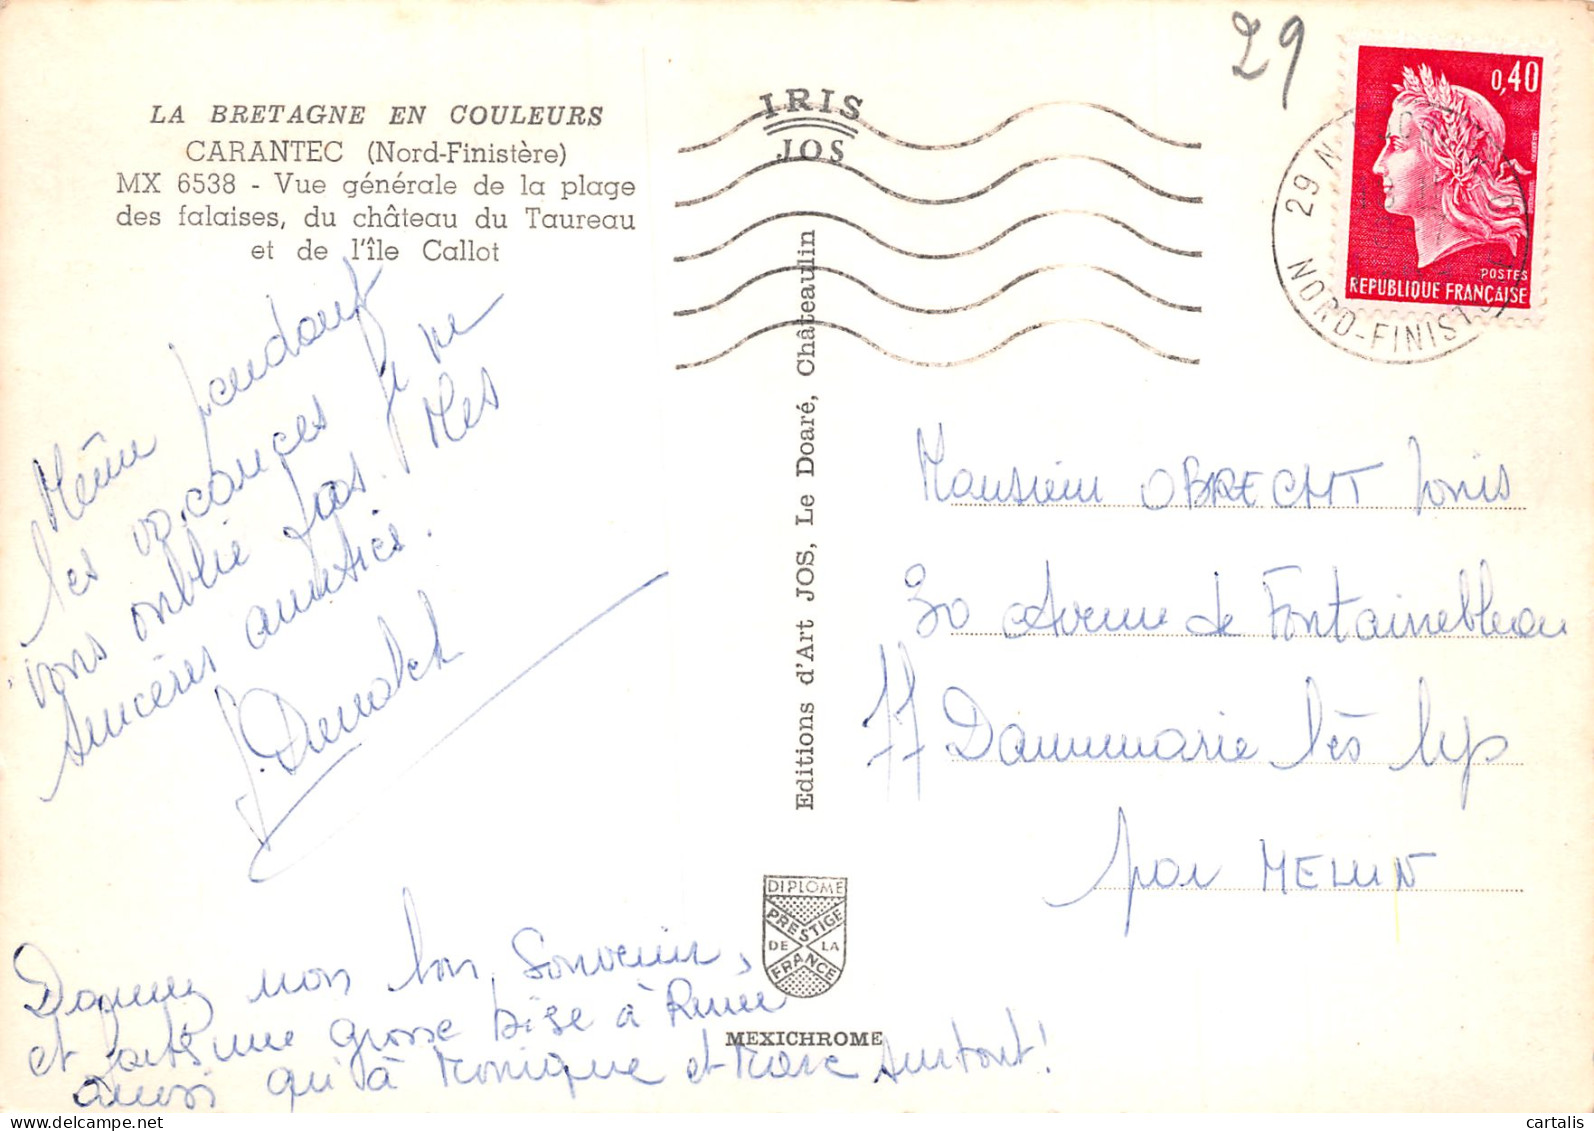 LA BRETAGNE EN COULEURS
CARANTEC (Nord-Finistère)
MX 6538 - Vue générale de la plage
des falaises, du château du Taureau
et de l'île Callot
Même pendant
les vacances je ne
vous oublie pas. Mes
sincères amitiés.
Donnez mon bon souvenir,
et faites une grosse bise à Renée
ainsi qu'à Monique et Marc surtout!
IRIS
JOS
Editions d'Art JOS, Le Doaré, Châteaulin
DIPLOME
PRESTIGE
DE LA
FRANCE
MEXICHROME
29
0,40
POSTES
REPUBLIQUE FRANÇAISE
29 N
NORD-FINIST
Monsieur OBRECHT
30 Avenue de Fontainebleau
77 Dammarie lès Lys
par MELUN
cartalis
delcampe.net